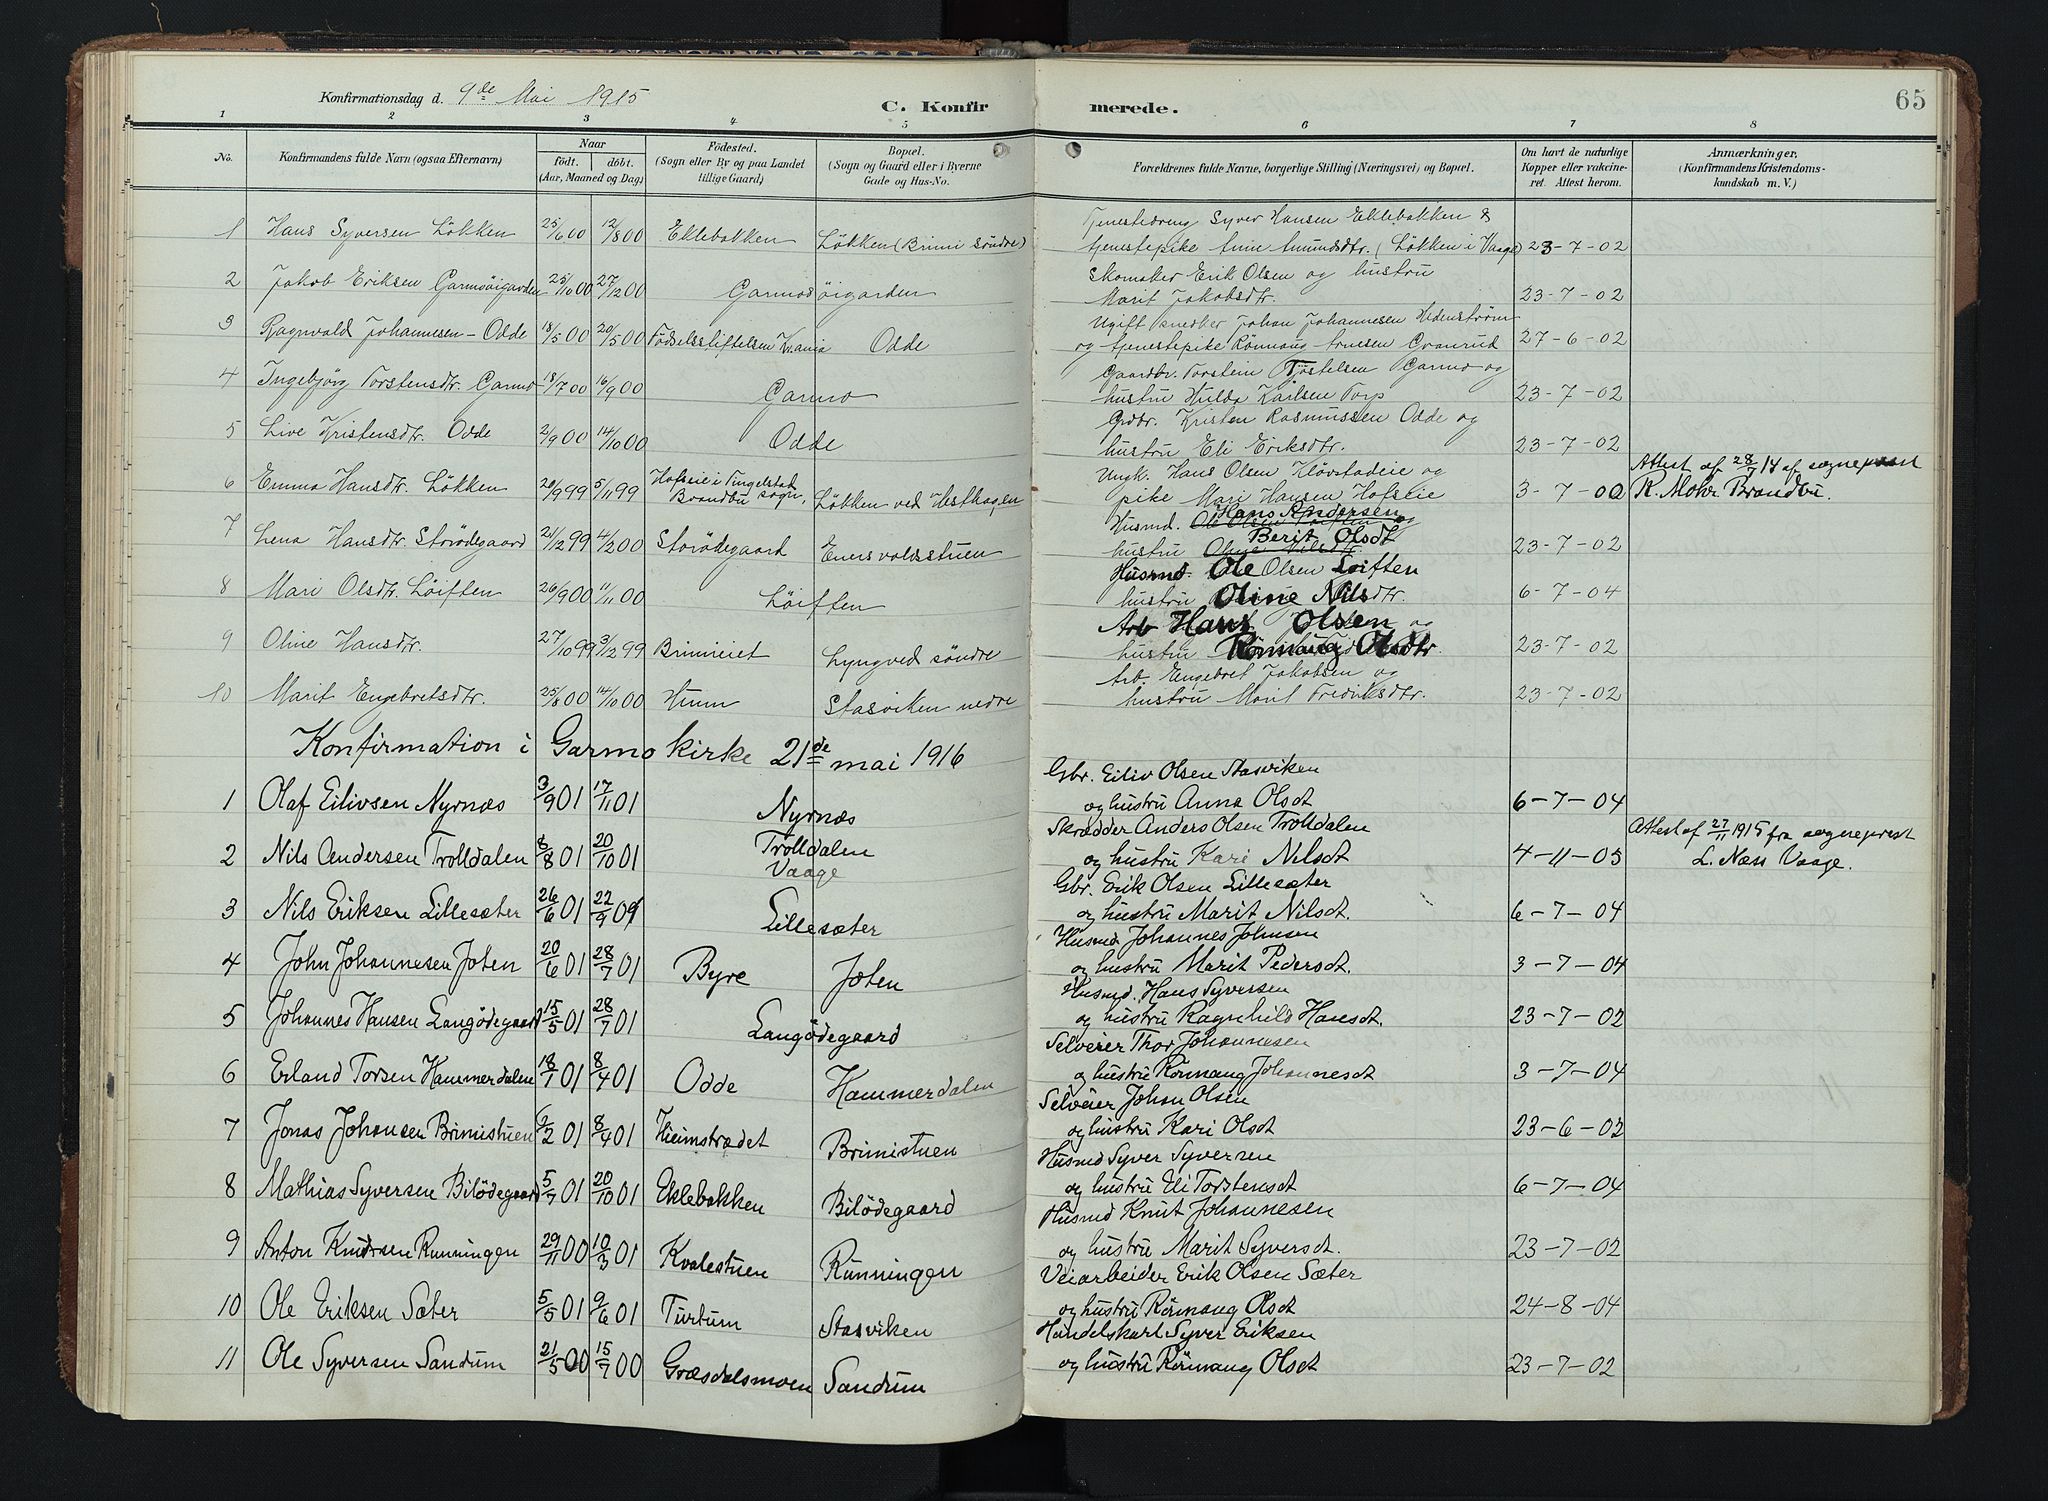 Konfirmationsdag d. 9de Mai 1915
C. Konfirmerede.
65
1 2 3 4 5 6 7 8
No.
Konfirmandens fulde Navn (ogsaa Efternavn)
Naar
født. døbt.
(Aar, Maaned og Dag)
Fødested.
(Sogn eller By og paa Landet
tillige Gaard)
Bopæl.
(Sogn og Gaard eller i Byerne
Gade og Hus-No.
Forældrenes fulde Navne, borgerlige Stilling (Næringsvei) og Bopæl.
Om havt de naturlige
Kopper eller vakcine-
ret. Attest herom.
Anmærkninger,
(Konfirmandens Kristendoms-
kundskab m. V.)
1 Hans Syversen Løkken 25/6 00 12/8 00 Eklebakken Løkken (Brimi søndre)
Tjenestedreng Syver Hansen Eklebakken &
tjenestepike Anne Amundsdtr. (Løkken i Vaage) 23-7-02
2 Jakob Eriksen Garmoöigarden 25/10 00 27/12 00 Garmoöigarden
Skomaker Erik Olsen og hustru
Marit Jakobsdtr. 23-7-02
3 Ragnvald Johannesen-Odde 18/5 00 20/5 00 Fødselsstiftelsen Kr.ania Odde
Ugift snedker Johan Johannesen Hedenstrøm
og tjenestepike Rönnaug 27-6-02
4 Ingebjörg Torstensdtr. Garmo 18/7 00 16/9 00 Garmo
Gaardbr. Torstein Tjöstelsen Garmo og
hustru Hulda Karlsen Torp 23-7-02
5 Live Kristensdtr. Odde 2/9 00 14/10 00 Odde
Grdbr. Kristen Rasmussen Odde og
hustru Eli Eriksdtr. 23-7-02
6 Emma Hansdtr. Løkken 20/9 99 5/11 99 Hofseie i Tingelstad
Brandbu sogn. Løkken ved Hesthagen
Ungk. Hans Olsen Klövstadeie og
pike Mari Hansen Hofseie 3-7-00
Attest af 28/7 14 af sogneprest
R. Mohr Brandbu.
7 Lena Hansdtr. Storödegaard 21/12 99 4/2 00 Storödegaard Enersvoldsstuen
Husmd. Hans Andersen og
hustru Berit Olsdt 23-7-02
8 Mari Olsdtr. Löiften 26/9 00 11/11 00 Löiften
Husmd. Ole Olsen Loiften
hustru Oline Nilsdtr. 6-7-04
9 Oline Hansdtr. 27/10 99 3/12 99 Brimieiet Lyngved söndre
Arb Hans Olsen og
hustru Rönnaug Olsdtr. 23-7-02
10 Marit Engebretsdtr. 25/8 00 14/10 00 Hum Stasviken nedre
Arb. Engebret Jakobsen og
hustru Marit Fredriksdtr. 23-7-02
Konfirmation i Garmo kirke 21de mai 1916
1 Olaf Eilivsen Nyrnæs 3/9 01 17/11 01 Nyrnæs
Gbr. Eiliv Olsen Stasviken
og hustru Anna Olsdt 6-7-04
2 Nils Andersen Trolldalen 8/8 01 20/10 01 Trolldalen
Vaage
Skrædder Anders Olsen Trolldalen
og hustru Kari Nilsdt 4-11-05
Attest af 27/11 1915 fra sogneprest
L. Næss Vaage.
3 Nils Eriksen Lillesæter 26/6 01 22/9 01 Lillesæter
Gbr. Erik Olsen Lillesæter
og hustru Marit Nilsdt. 6-7-04
4 John Johannesen Joten 20/6 01 28/7 01 Byre Joten
Husmd Johannes Johnsen
og hustru Marit Pedersdt. 3-7-04
5 Johannes Hansen Langödegaard 15/5 01 28/7 01 Langödegaard
Husmd. Hans Syversen
og hustru Ragnhild Hansdt. 23-7-02
6 Erland Torsen Hammerdalen 18/1 01 8/4 01 Odde Hammerdalen
Selveier Thor Johannesen
og hustru Rönnaug Johannesdt 3-7-04
7 Jonas Johansen Brimistuen 6/2 01 8/4 01 Heimstrædet Brimistuen
Selveier Johan Olsen
og hustru Kari Olsdt 23-6-02
8 Mathias Syversen Bilödegaard 5/7 01 20/10 01 Eklebakken Bilödegaard
Husmd Syver Syversen
og hustru Eli Torstensdt 6-7-04
9 Anton Knudsen Runningen 29/11 00 10/3 01 Kvalestuen Runningen
Husmd Knut Johannesen
og hustru Marit Syversdt. 23-7-02
10 Ole Eriksen Sæter 5/5 01 9/6 01 Turtum Stasviken
Veiarbeider Erik Olsen Sæter
og hustru Rönnaug Olsdt 24-8-04
11 Ole Syversen Sandum 21/5 00 15/7 00 Græsdalsmoen Sandum
Handelskarl Syver Eriksen
og hustru Rönnaug Olsdt 23-7-02